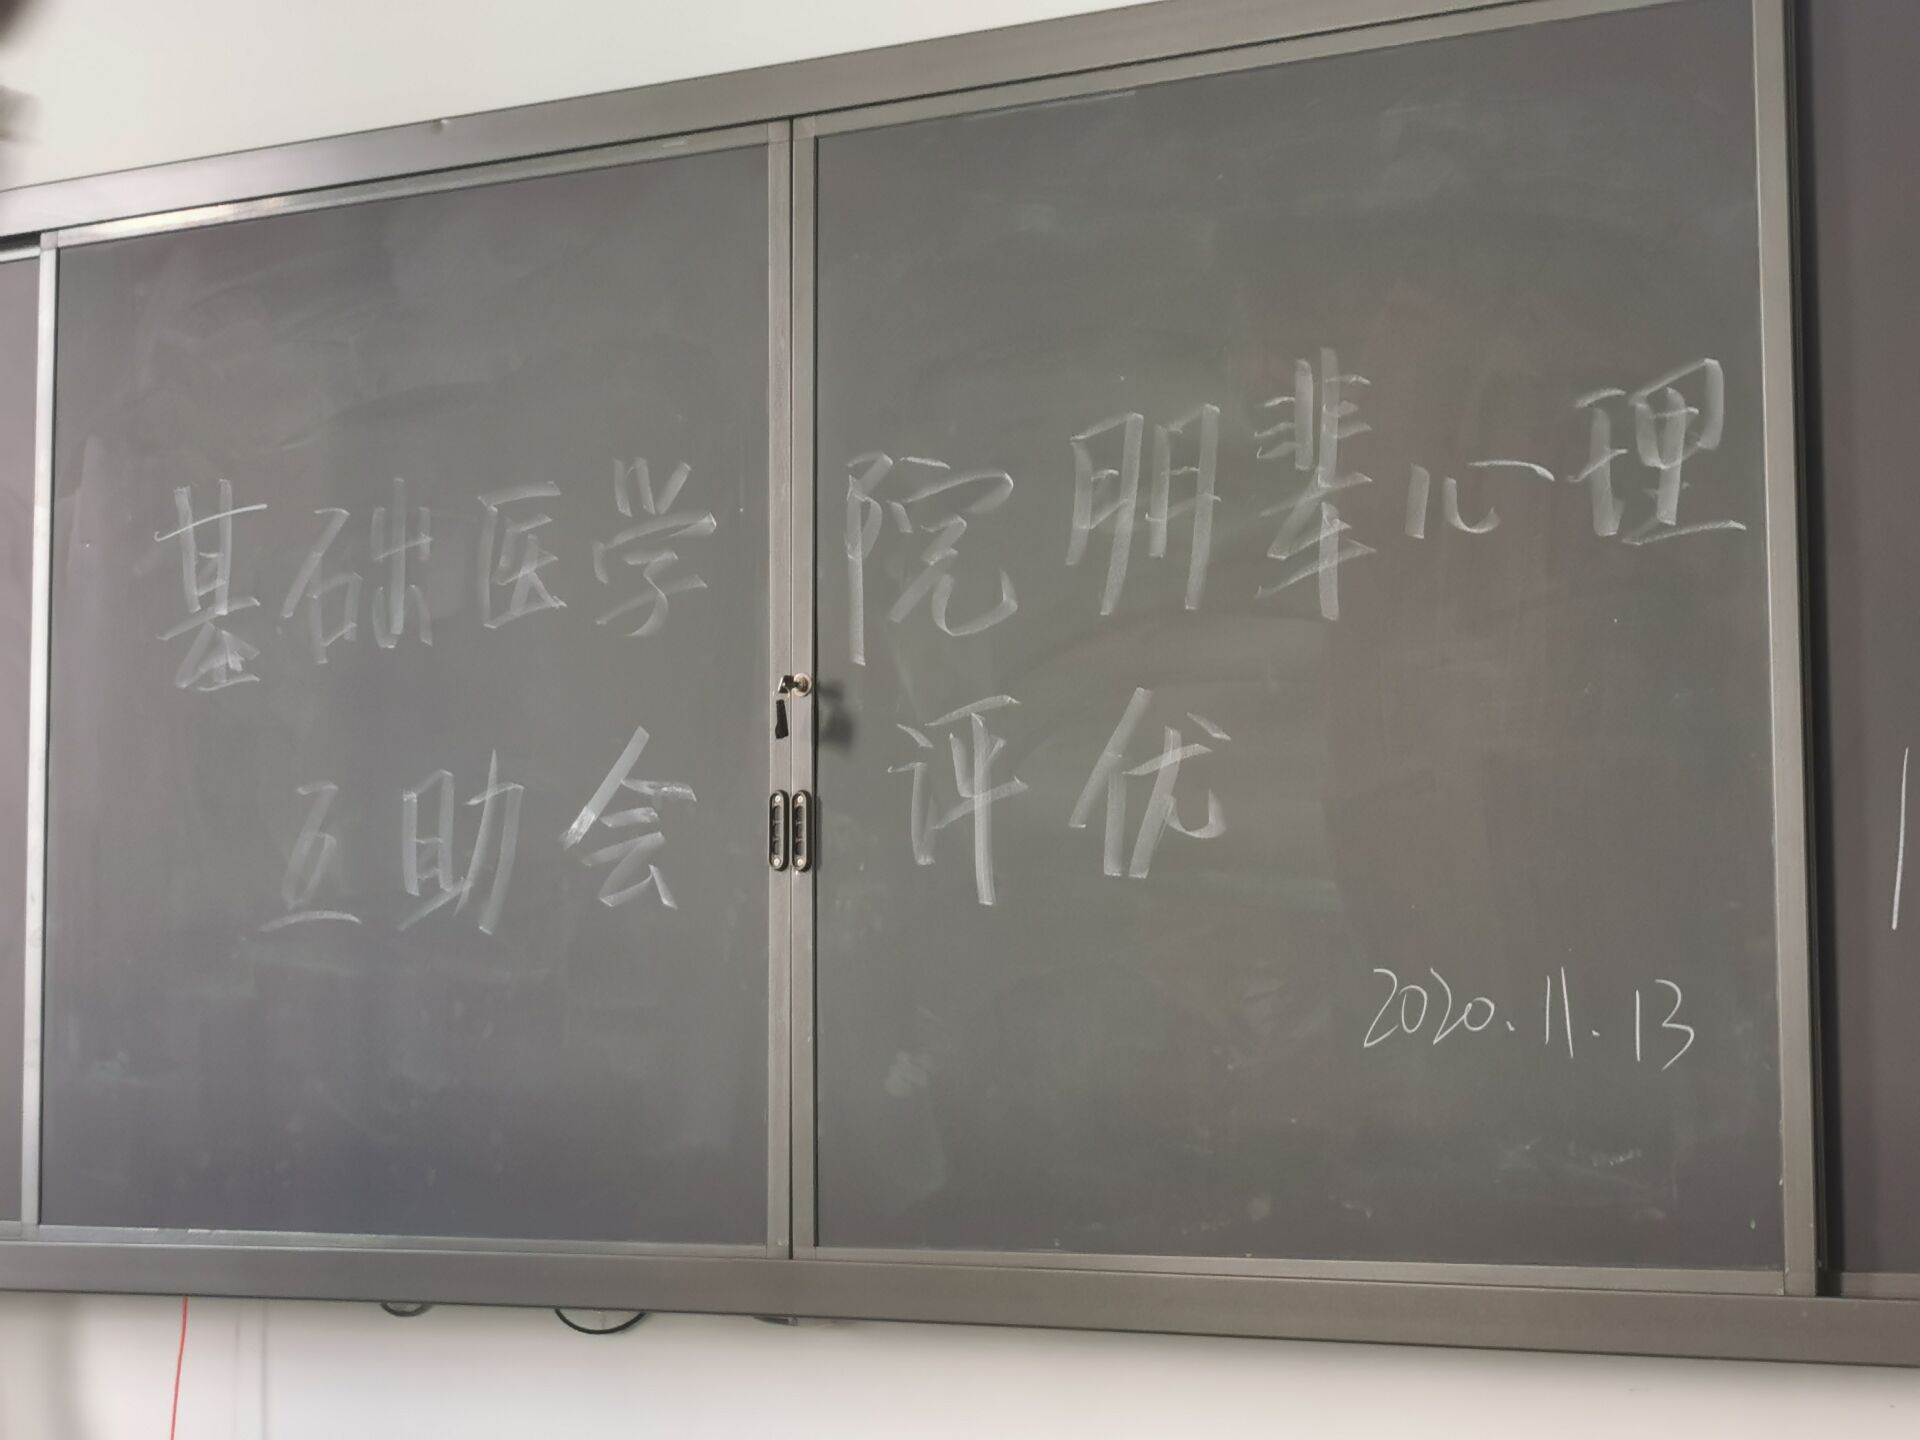 基础医学院朋辈心理
互助会评优
2020.11.13